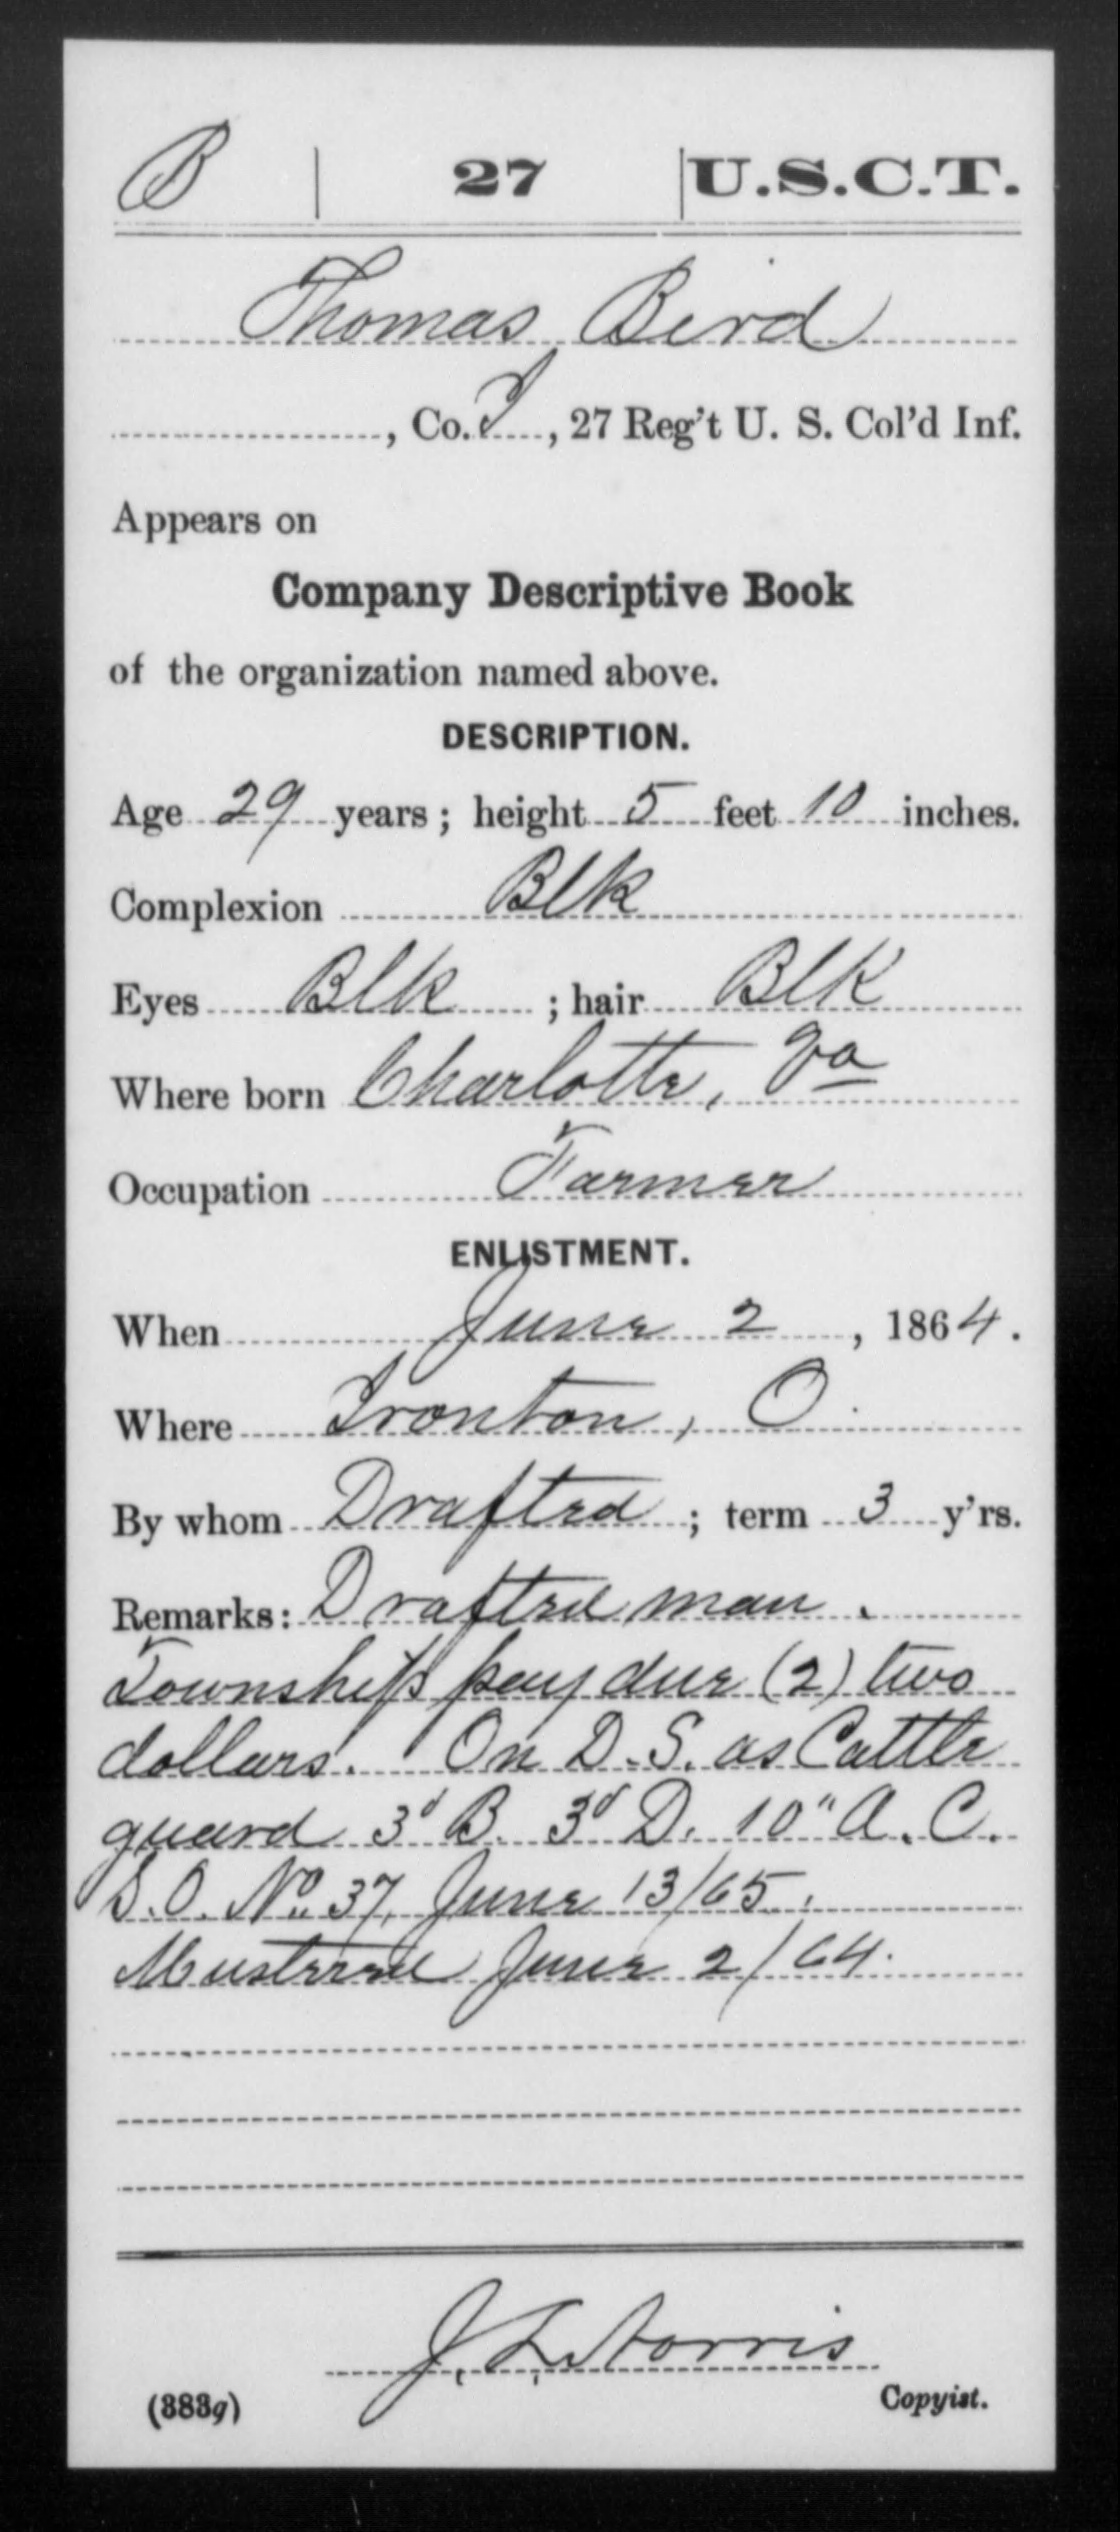 B | 27 | U.S.C.T.
Thomas Bird
, Co. I, 27 Reg't U. S. Col'd Inf.
Appears on
Company Descriptive Book
of the organization named above.
DESCRIPTION.
Age 29 years; height 5 feet 10 inches.
Complexion Blk
Eyes Blk ; hair Blk
Where born Charlotte, Va
Occupation Farmer
ENLISTMENT.
When June 2, 1864.
Where Ironton, O.
By whom Drafted ; term 3 y'rs.
Remarks: Drafted man.
Township pay due (2) two
dollars. On D.S. as Cattle
guard 3d B. 3d D. 10" A. C.
S.O. No. 37, June 13/65.
Mustered June 2/64.
J. L. Norris
(383g) Copyist.